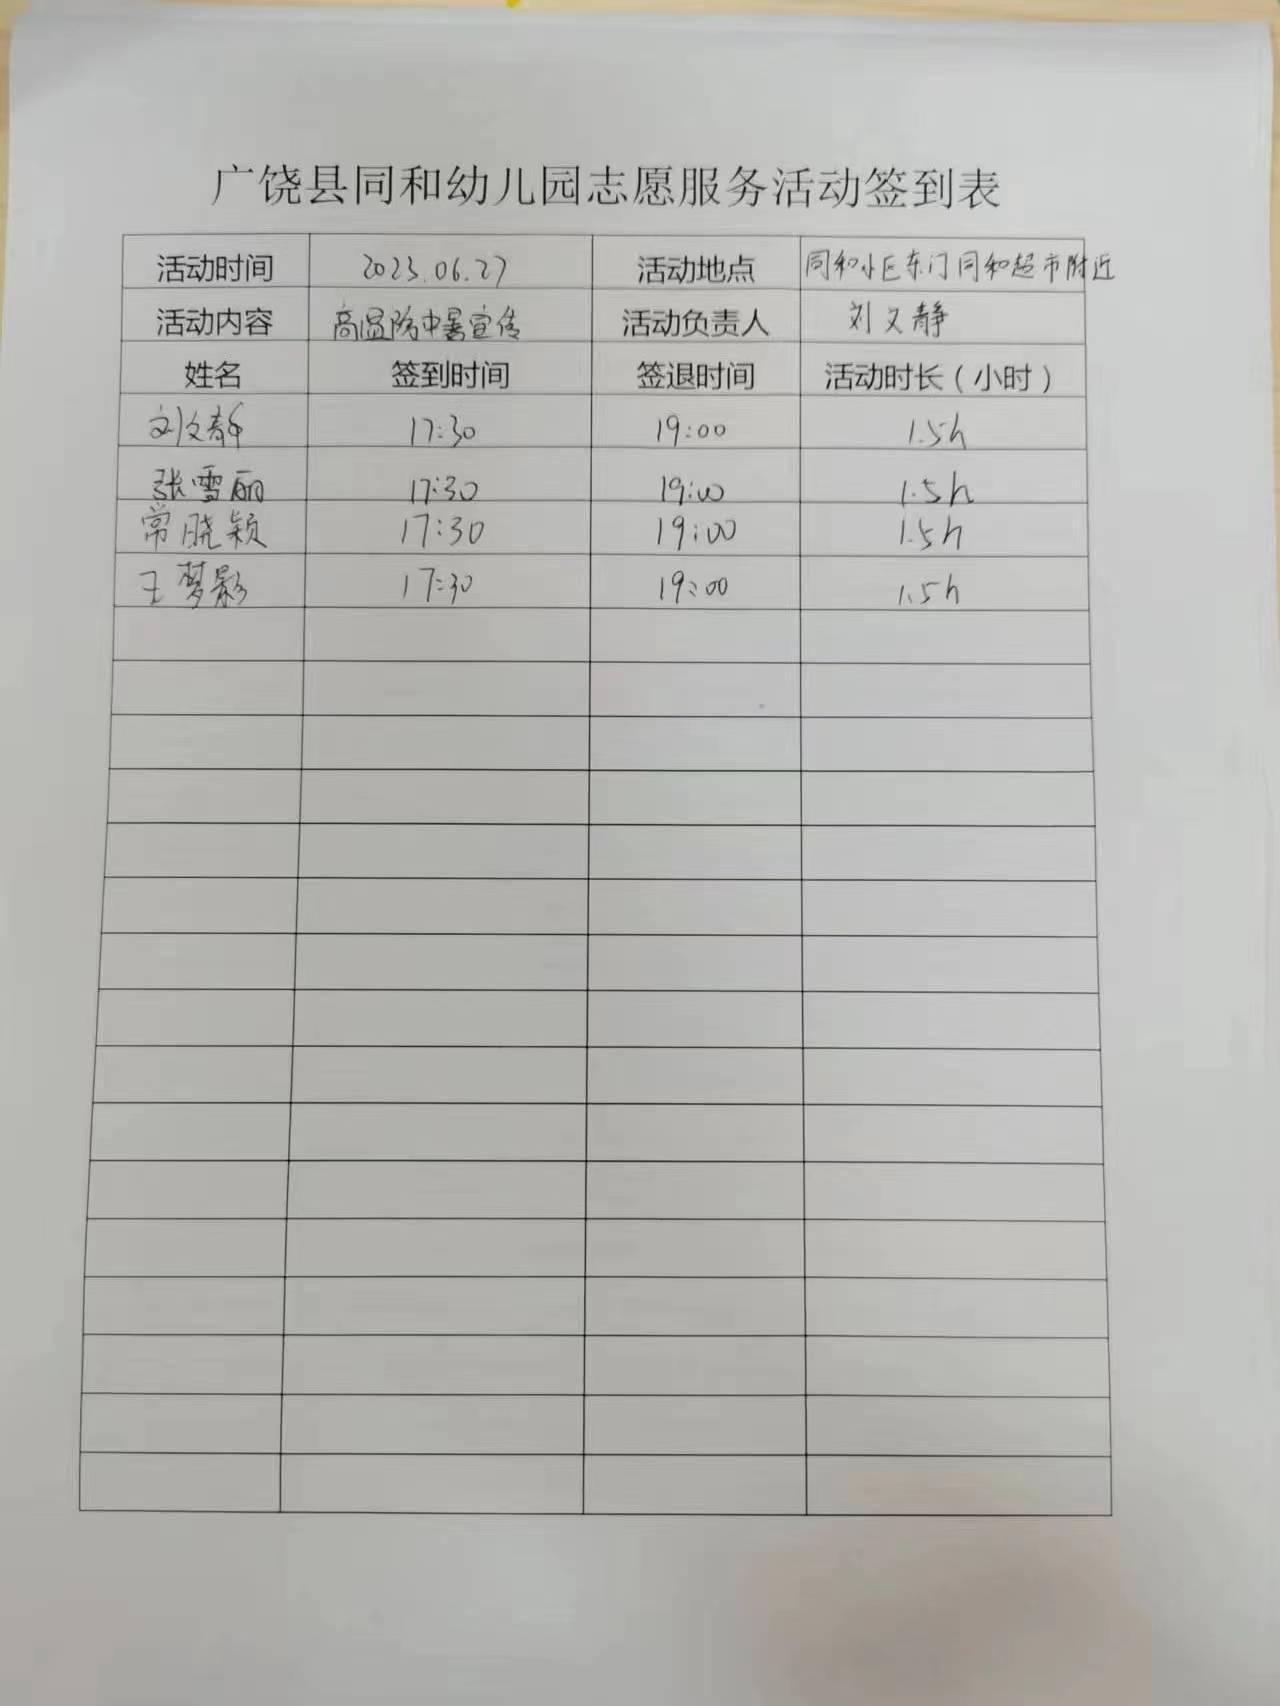 广饶县同和幼儿园志愿服务活动签到表
活动时间 2023.06.27 活动地点 同和小区东门同和超市附近
活动内容 高温防中暑宣传 活动负责人 刘文静
姓名 签到时间 签退时间 活动时长（小时）
刘文静 17:30 19:00 1.5h
张雪丽 17:30 19:00 1.5h
常晓颖 17:30 19:00 1.5h
王梦影 17:30 19:00 1.5h